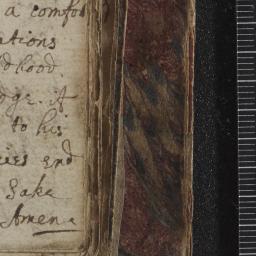 a comfor
ations
dhood
dge. A
to his
ies end
Sake
Amen